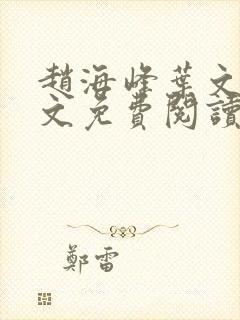 趙海峰葉文
文免費閱讀
鄭雷